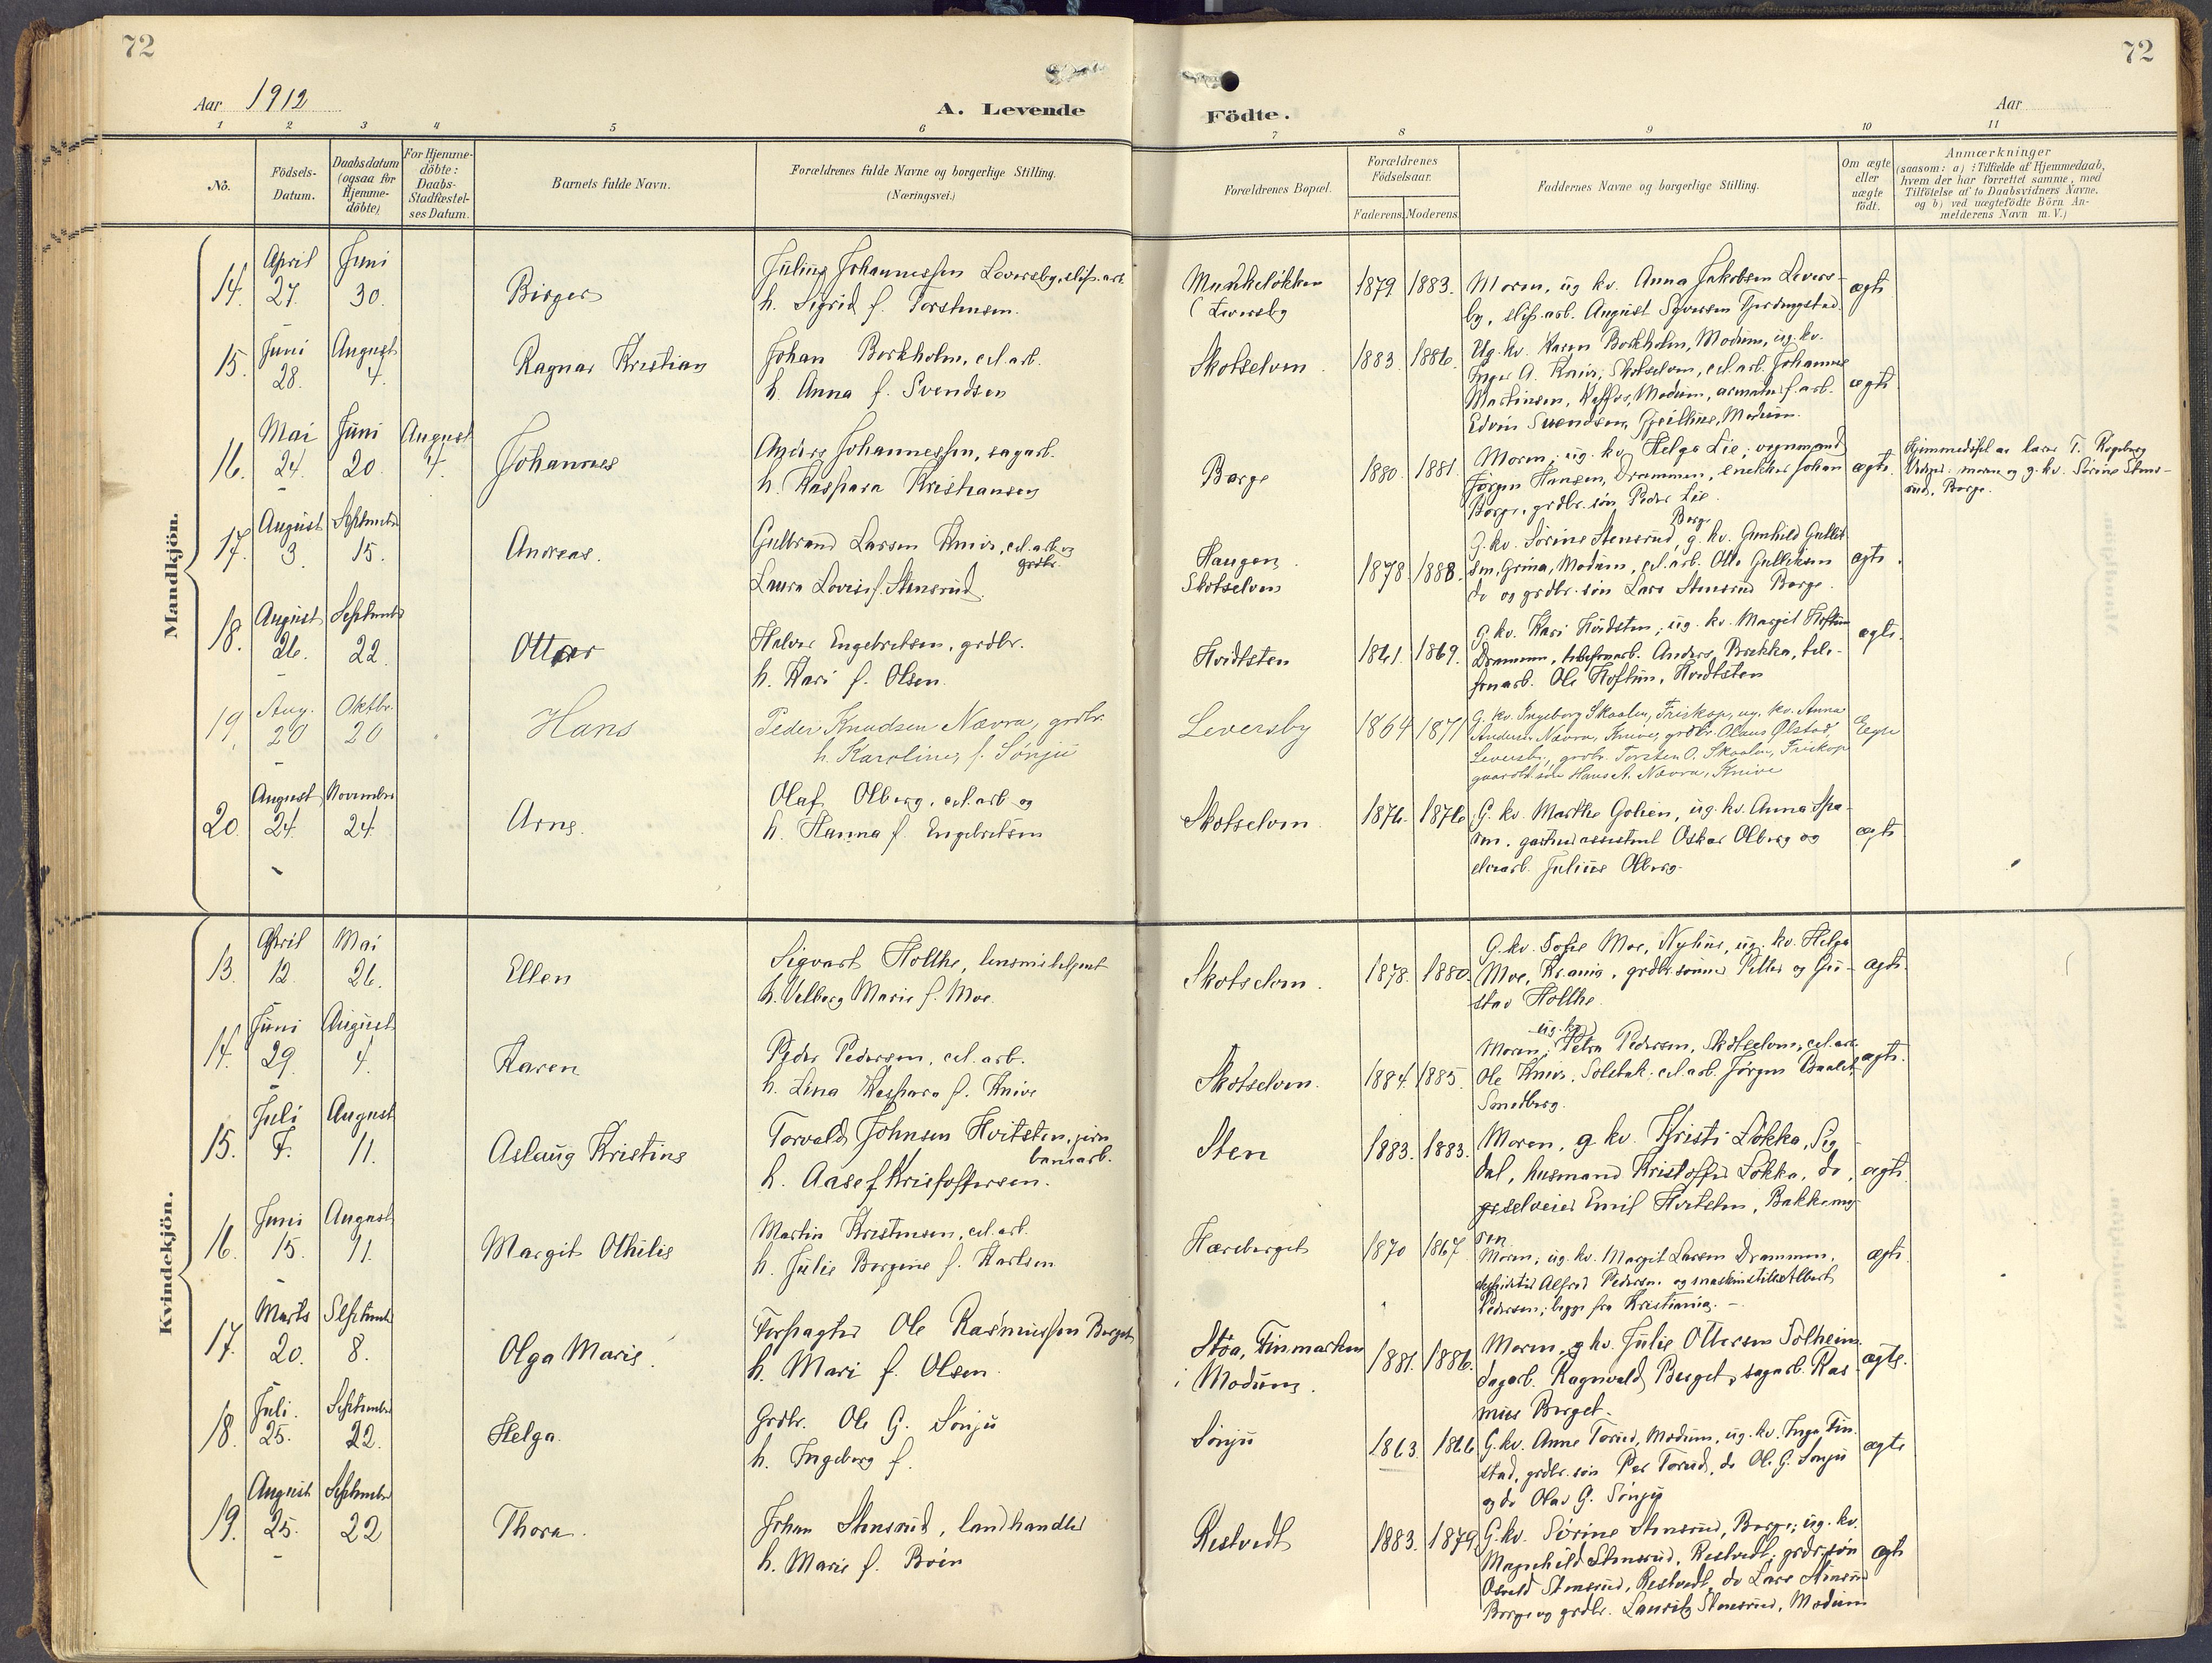 72
72
Aar 1912
A. Levende
Födte.
Aar
1 2 3 4 5 6 7 8 9 10 11
No.
Födsels-
Datum.
Daabsdatum
(ogsaa for
Hjemme-
döbte)
For Hjemme-
döbte:
Daabs-
Stadfæstel-
ses Datum.
Barnets fulde Navn.
Forældrenes fulde Navne og borgerlige Stilling.
(Næringsvei.)
Forældrenes Bopæl.
Forældrenes
Födselsaar.
Faderens. Moderens.
Faddernes Navne og borgerlige Stilling.
Om ægte
eller
uægte
födt.
Anmærkninger
(saasom: a) i Tilfælde af Hjemmedaab,
hvem der har forrettet samme, med
Tilföielse af to Daabsvidners Navne.
og b) ved uægtefödte Börn An-
melderens Navn m. V.)
Mandkjön.
14. April 27. Juni 30. Birger
Julius Johannessen Loversby, slip. arb.
h. Sigrid f. Torstensen.
Munkeløkken
(Leversby
1879 1883.
Moren, ug kv. Anna Jakobsen Levers-
by, slip. arb. August Syversen Gjerdingstad
ægte
15. Juni 28. August 4. Ragnar Kristian
Johan Borkholm, cel. arb.
h. Anna f. Svendsen
Skotselven
1883 1886.
Ug. kv. Karen Borkholm, Modum, ug. kv.
Inger A. Kniv, Skotselven, cel. arb. Johannes
Martinsen, Kaffos, Modum, arb.
Edvin Svendsen, Geithus, Modum.
ægte
16. Mai 24. Juni 20. August 4. Johannes
Anders Johannessen, sagarb.
h. Kaspara Kristiansen
Borge
1880. 1881.
Moren, ug. kv. Helga Lie, vognmand
Jørgen Hansen, Drammen, snekker Johan
Borge, grdbr. søn Peder Lie.
ægte.
Hjemmedøbt av lærer T. Kopsberg
Vidner: moren og g. kv. Sørine Stens-
rud, Borge.
17. August 3. September 15. Andreas.
Gulbrand Larsen Kniv, cel. arb og
grdbr.
Laura Lovise f. Stensrud.
Haugen
Skotselven
1878. 1888.
Borge
G. kv. Sørine Stensrud, g. kv. Gunhild Gullik-
sen, Grina, Modum, cel. arb. Otto Gulliksen
do og grdbr. søn Lars Stensrud Borge.
ægte.
18. August 26. September 22. Ottar
Halvor Engebretsen, grdbr.
h. Kari f. Olsen.
Hvidtsten
1861. 1869.
G. kv. Kari Hvidsten, ug. kv. Margit Hoftun
Drammen, telefonarb. Anders Brekka, tele-
fonarb. Ole Hoftun, Hvidtsten
ægte.
19. Aug. 20 Oktbr. 20 Hans
Peder Knudsen Nævra, grdbr.
h. Karoline, f. Sønju
Leversby
1864 1871
G. kv. Ingeborg Skaalen, Friskop, ug. kv. Anna
Andersen Nævra, Knive, grdbr. Olaus Ølstad,
Leversby, grdbr. Torsten O. Skaalen, Friskop
gaardbr. søn Hans A. Nævra, Knive
Egte
20. August 24. November 24. Arne.
Olaf Olberg, cel. arb. og
h. Hanna f. Engebretsen
Skotselven
1876. 1876
G. kv. Marthe Golien, ug. kv. Anna Spa-
ren, gartnerassistent Oskar Olberg og
elevarb. Julius Olberg
ægte
Kvindekjön.
13. April 12. Mai 26. Ellen
Sigvart Holthe, lensmbetjent
h. Valborg Marie f. Moe.
Skotselven.
1878. 1880
G. kv. Sofie Moe, Nyhus, ug. kv. Helga
Moe, Kr.ania, grdbr. sønner Petter og Gu-
stav Holthe.
ægte.
14. Juni 29. August 4. Karen
Peder Pedersen, cel. arb.
h. Lina Kaspara f. Knive
Skotselven.
1884. 1885.
ug. kv.
Moren, Petra Pedersen, Skotselven, cel. arb.
Ole Kniv, Solbak, cel. arb. Jørgen
Smedberg.
ægte.
15. Juli 7. August 11. Aslaug Kristine
Torvald Johnsen Hvitsten, jern
banearb.
h. Aase f Kristoffersen.
Sten
1883. 1883.
Moren, g kv. Kristi Løkka, Sig
dal, husmand Kristoffer Løkka, do,
grselveier Emil Hvitsten, Bakkeeng-
en
ægte.
16. Juni 15. August 11. Margit Othilie
Martin Kristensen, cel. arb.
h. Julie Borgine f. Karlsen
Horsberget
1870 1867
Moren, ug. kv. Margit Larsen Drammen,
Alfred Pedersen og maskinstiller Albert
Pedersen, begge fra Kristiania.
ægte
17. Marts 20. September 8. Olga Marie.
Forpagter Ole Rasmussen Berget
h. Mari f. Olsen.
Støa, Finmarken
i Modum.
1881. 1886.
Moren, g kv. Julie Ottersen Solheim
dagarb. Ragnvald Berget, sagarb. Ras-
mus Berget.
ægte.
18. Juli 25. September 22. Helga.
Grdbr. Ole G. Sønju
h. Ingeborg f.
Sønju
1863. 1866
G. kv. Anne Torud, Modum, ug. kv. Inga Fin-
stad, grdbr. søn Per Torud, do Ole G. Sønju
og do Olav G. Sønju
ægte
19. August 25. September 22 Thora.
Johan Stensrud, landhandler
h. Marie f. Boien
Restvedt
1883. 1879
G. kv. Sørine Stensrud, Borge, ug. kv.
Magnhild Stensrud, Restvedt, grdr. søn
Osvald Stensrud, Restvedt, do Lars Stensrud
Borge og grdbr. Laurits Stensrud, Modum
ægte